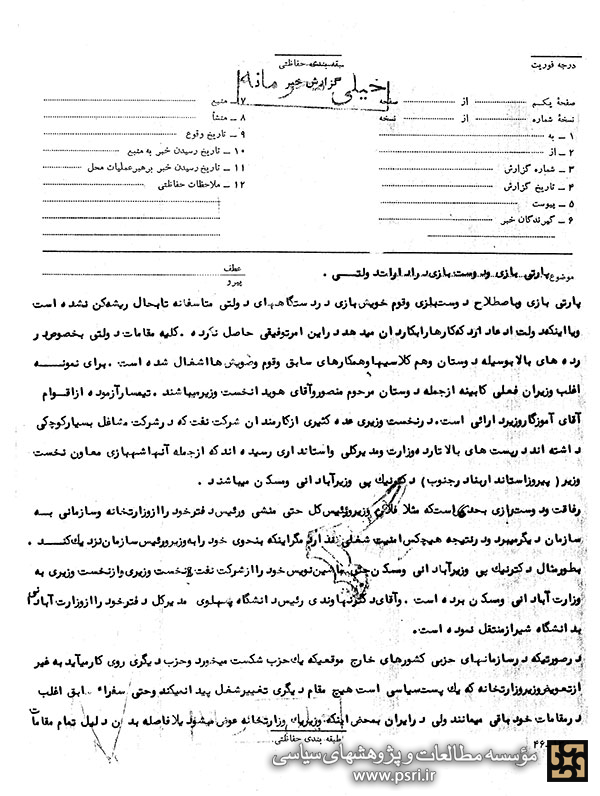 درجه فوریت
طبقه بندی حفاظتی
خیلی محرمانه
گزارش خبر
صفحه یکم از صفحه
نسخه شماره از نسخه
۱ ـ به
۲ ـ از
۳ ـ شماره گزارش
۴ ـ تاریخ گزارش
۵ ـ پیوست
۶ ـ گیرندگان خبر
۷ ـ منبع
۸ ـ منشأ
۹ ـ تاریخ وقوع
۱۰ ـ تاریخ رسیدن خبر به منبع
۱۱ ـ تاریخ رسیدن خبر برهبر عملیات محل
۱۲ ـ ملاحظات حفاظتی
موضوع پارتی بازی و دوست بازی در ادارات دولتی .
عطف
پیرو
پارتی بازی و باصطلاح دوست بازی و قوم خویش بازی در دستگاههای دولتی متاسفانه تابحال ریشه کن نشده است
و با اینکه دولت ادعا دارد که کار را بکاردان میدهد در این امر توفیقی حاصل نکرده . کلیه مقامات دولتی بخصوص در
رده های بالا بوسیله دوستان و هم کلاسیها و همکارهای سابق و قوم و خویش ها اشغال شده است . برای نمونه
اغلب وزیران فعلی کابینه از جمله دوستان مرحوم منصور و آقای هویدا نخست وزیر میباشند . تیمسار آزموده از اقوام
آقای آموزگار وزیر دارائی است . در نخست وزیری عده کثیری از کارمندان شرکت نفت که در شرکت مشاغل بسیار کوچکی
داشته اند در پست های بالا تا رده وزارت و مدیر کلی و استانداری رسیده اند که از جمله آنها شهبازی معاون نخست
وزیر ( پیروز استاندار بنادر جنوب ) دکتر نیک پی وزیر آبادانی و مسکن میباشند .
رفاقت و دوست بازی بحدی است که مثلا فلان وزیر و رئیس کل حتی منشی و رئیس دفتر خود را از وزارتخانه و سازمانی به
سازمان دیگر میبرد و در نتیجه هیچکس امنیت شغلی ندارد مگر اینکه بنحوی خود را به وزیر و رئیس سازمان نزدیک کند .
بطور مثال دکتر نیک پی وزیر آبادانی و مسکن حتی ماشین نویس خود را از شرکت نفت به نخست وزیری و از نخست وزیری به
وزارت آبادانی و مسکن برده است . و آقای دکتر نهاوندی رئیس دانشگاه پهلوی مدیر کل دفتر خود را از وزارت آبادانی
بدانشگاه شیراز منتقل نموده است .
در صورتیکه در سازمانهای حزبی کشورهای خارج موقعیکه یک حزب شکست میخورد و حزب دیگری روی کار میآید به غیر
از تعویض وزیر وزارتخانه که یک پست سیاسی است هیچ مقام دیگری تغییر شغل پیدا نمیکند و حتی سفراء سابق اغلب
در مقامات خود باقی میمانند ولی در ایران بمحض اینکه وزیر یک وزارتخانه عوض میشود بلافاصله بدان دلیل تمام مقامات
طبقه بندی حفاظتی
۴۶
مؤسسه مطالعات و پژوهشهای سیاسی
www.psri.ir